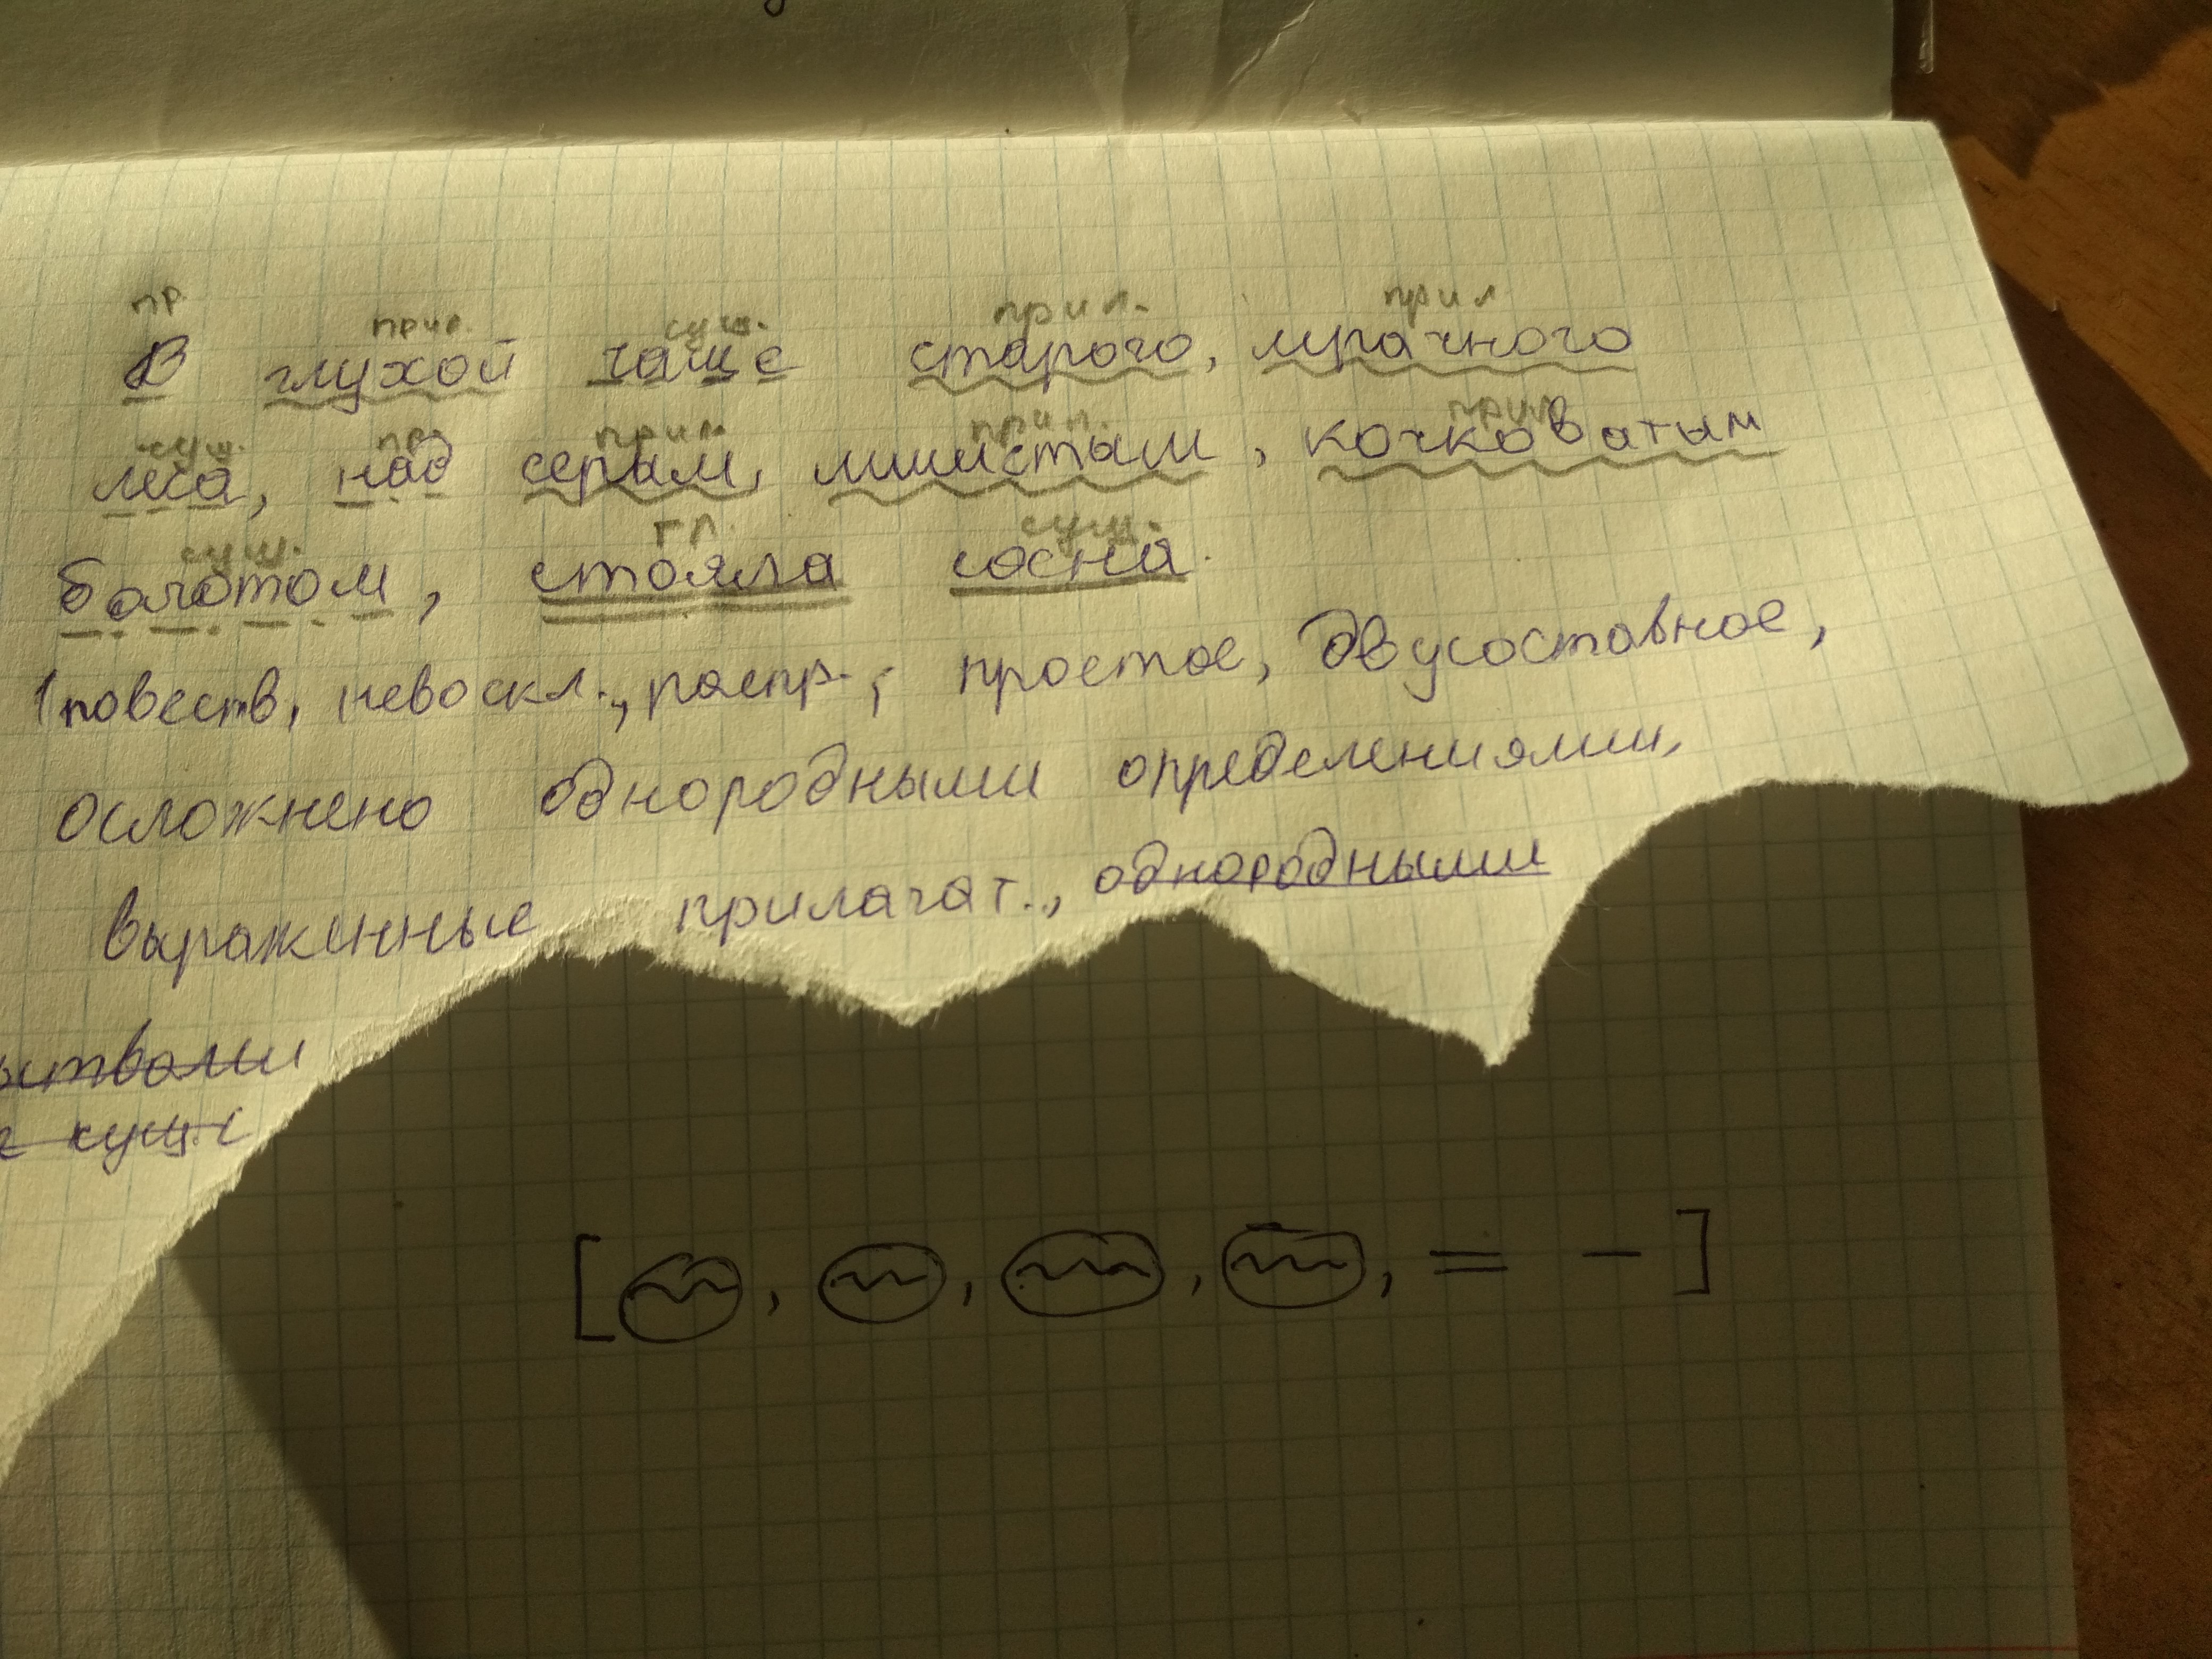 пр. прил. сущ. прил. прил
В глухой чаще старого, мрачного
сущ. пр. прил. прил. прил.
леса, над серым, мшистым, кочковатым
сущ. гл. сущ.
болотом, стояла сосна.
повеств, невоскл., распр., простое, двусоставное,
осложнено однородными определениями,
выраженные прилагат., однородными
[ , , , , = - ]